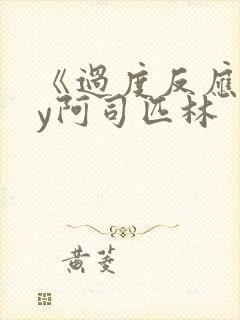 《過度反應
y阿司匹林
黃菱